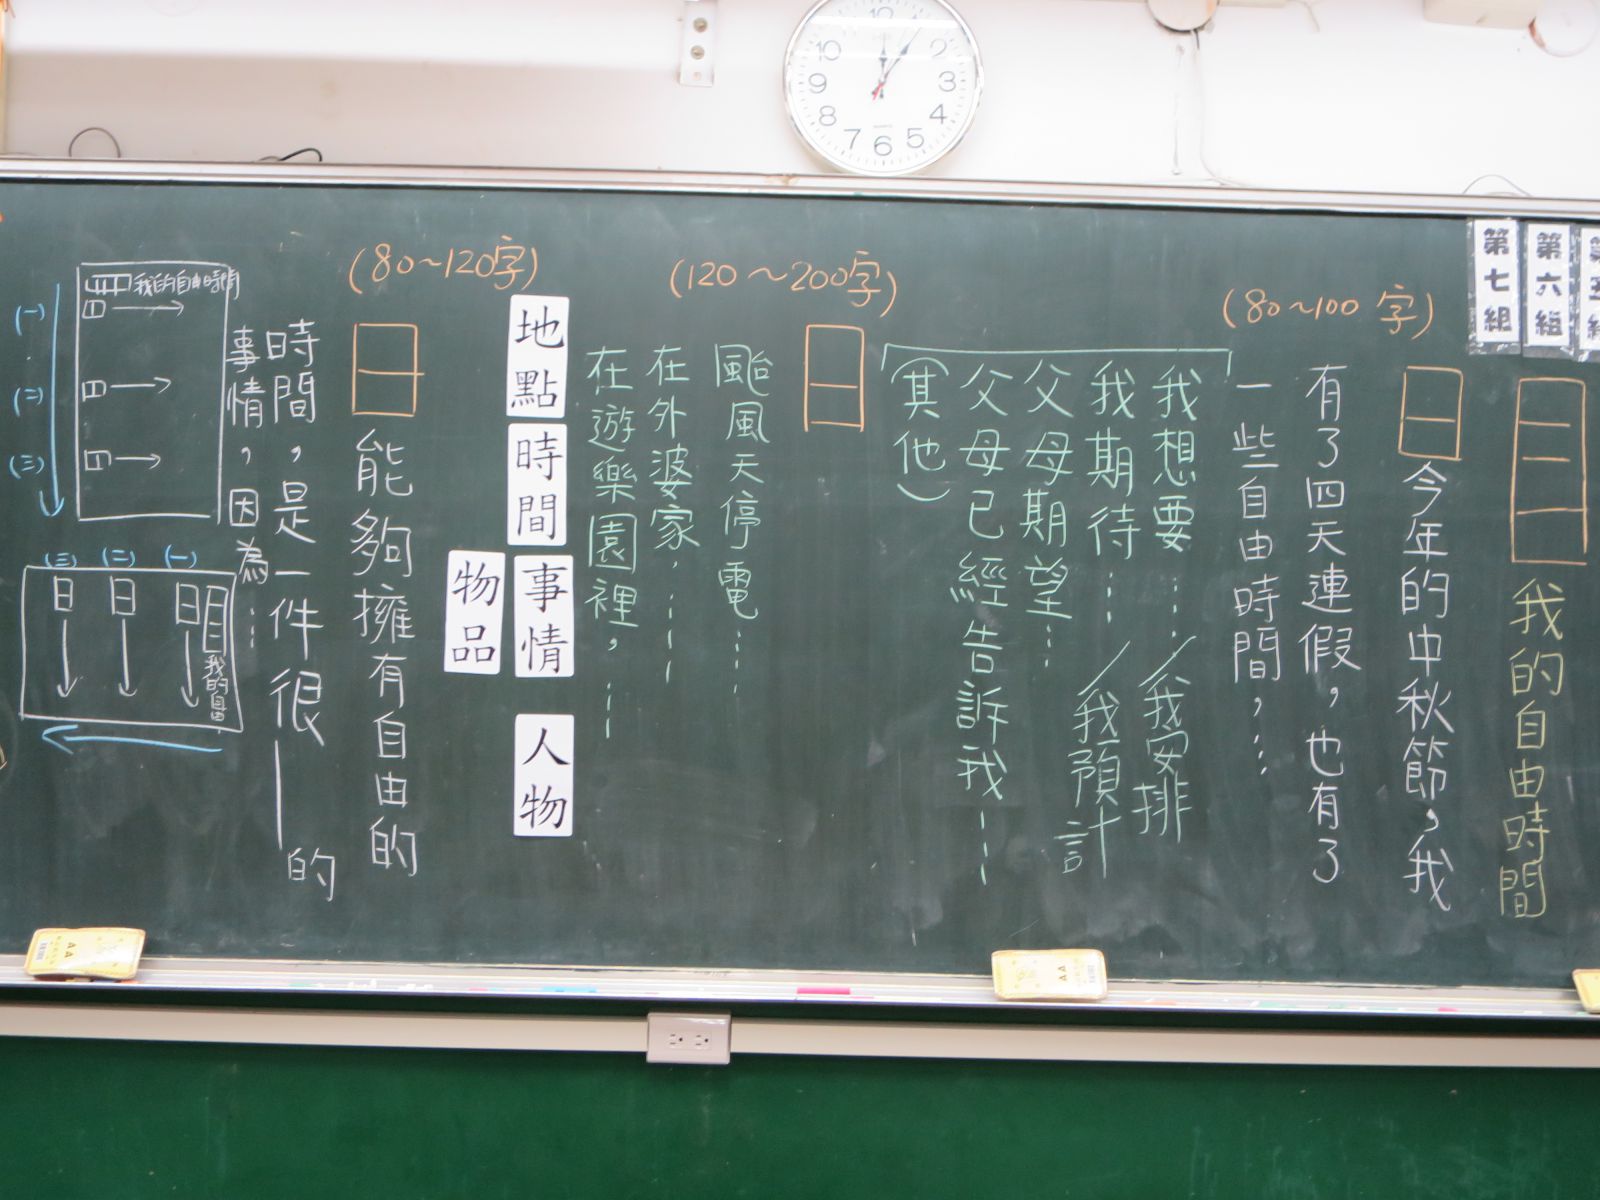 第五
第六組
第七組
我的自由時間
(80~100字)
今年的中秋節，我
有了四天連假，也有了
一些自由時間，…
我想要…／我安排
我期待…／我預計
父母期望…
父母已經告訴我……
(其他)
(120~200字)
颱風天停電…
在外婆家，……
在遊樂園裡，……
地點
時間
事情
人物
物品
(80~120字)
能夠擁有自由的
時間，是一件很——的
事情，因為…
我的自由時間
(一)
(二)
(三)
(一)
(二)
(三)
我的自由
12
2
3
4
5
6
7
8
9
10
QUARTZ
AA
AA